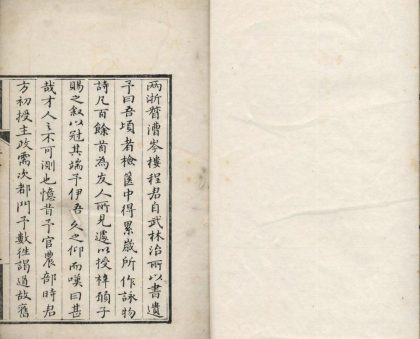 兩浙督漕岑樓程君自武林治所以書遺
予曰吾頃者檢篋中得累歲所作詠物
詩凡百餘首為友人所見遽以授梓頫子
賜之叙以冠其端予伊吾久之仰而嘆曰甚
哉才人之不可測也憶昔予官農部時君
方初授主政需次都門予數徃謁道故舊